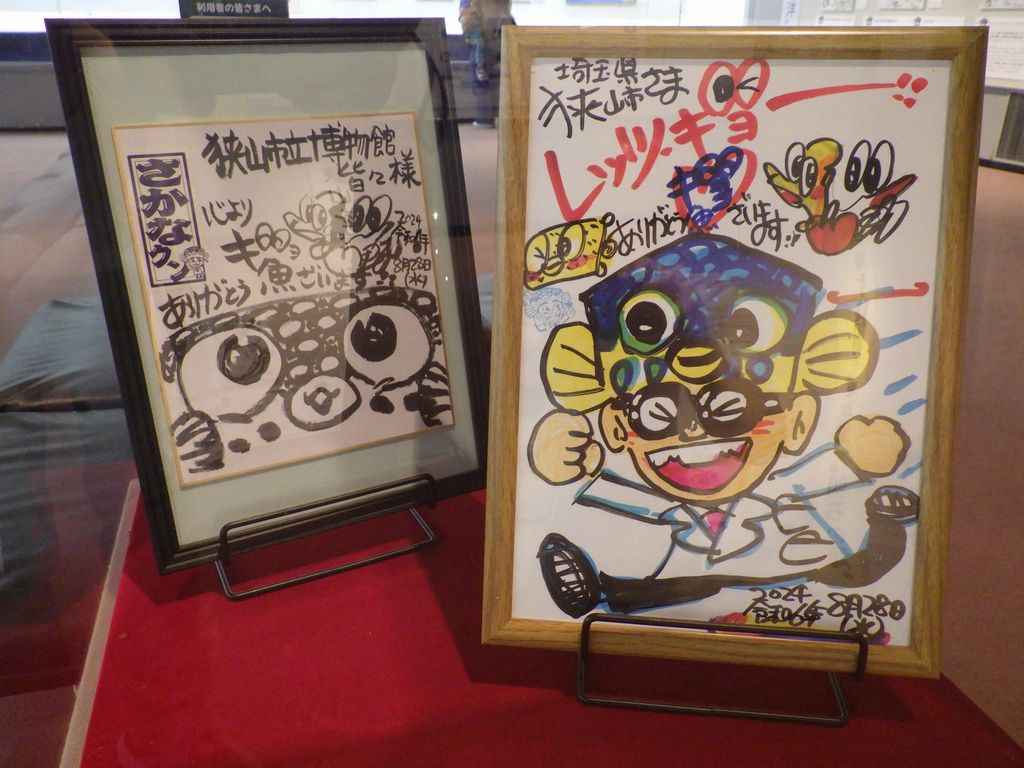 利用者の皆さまへ
狭山市立博物館
皆々様
さかなクン
心より
ギョ魚ざいます
ありがとう
2024
令和6年
8月28日
(水)
埼玉県
狭山市さま
レッツ・ギョー
ありがとうございます
2024
令和06年 8月28日
(水)